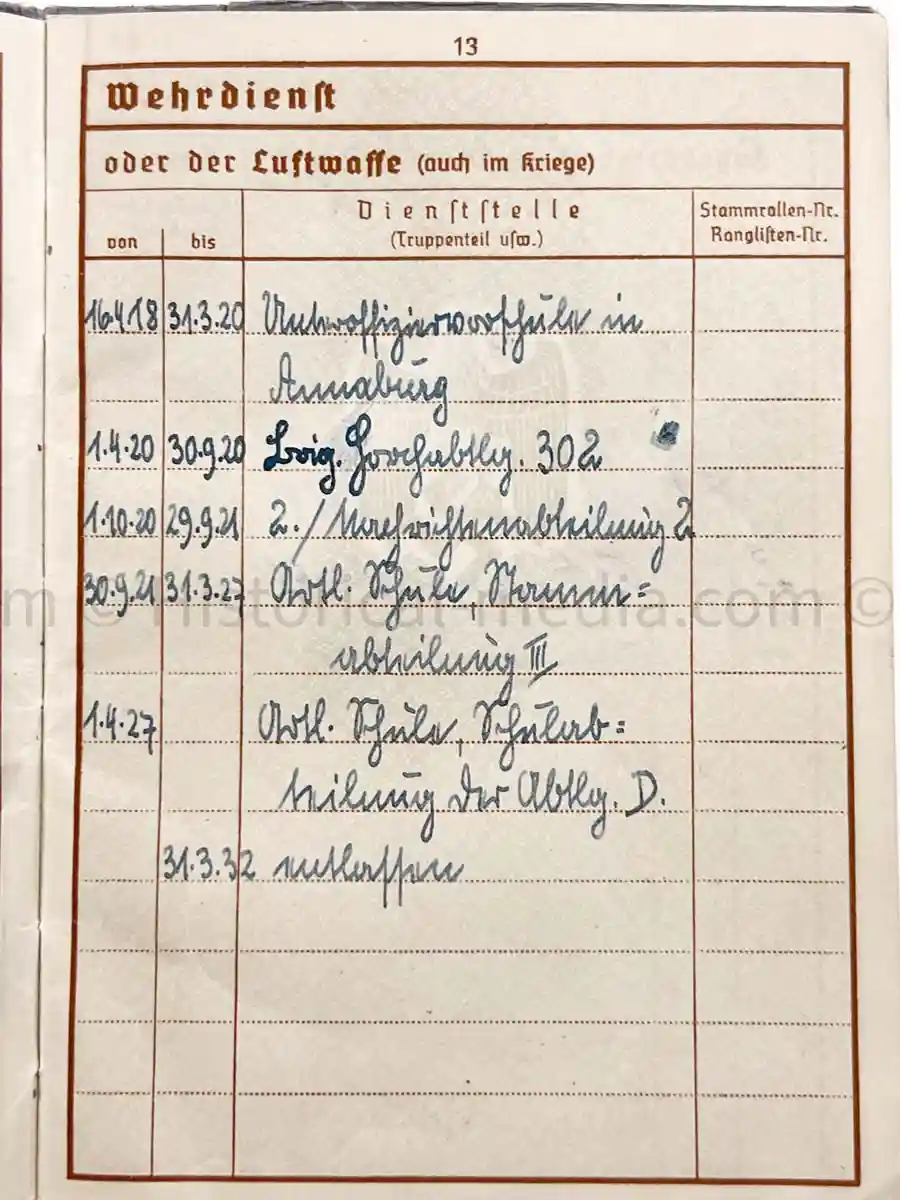 13
Wehrdienst
oder der Luftwaffe (auch im Kriege)
von bis Dienststelle (Truppenteil usw.) Stammrollen-Nr. Ranglisten-Nr.
16.4.18 31.3.20 Unteroffiziervorschule in
Annaburg
1.4.20 30.9.20 Brig. Horchabtlg. 302
1.10.20 29.9.21 2./Nachrichtenabteilung 2
30.9.21 31.3.27 Artl. Schule, Stamm=
m © Historical-media.com ©
abteilung III
1.4.27 Artl. Schule, Schulab=
teilung der Abtlg. D.
31.3.32 entlassen